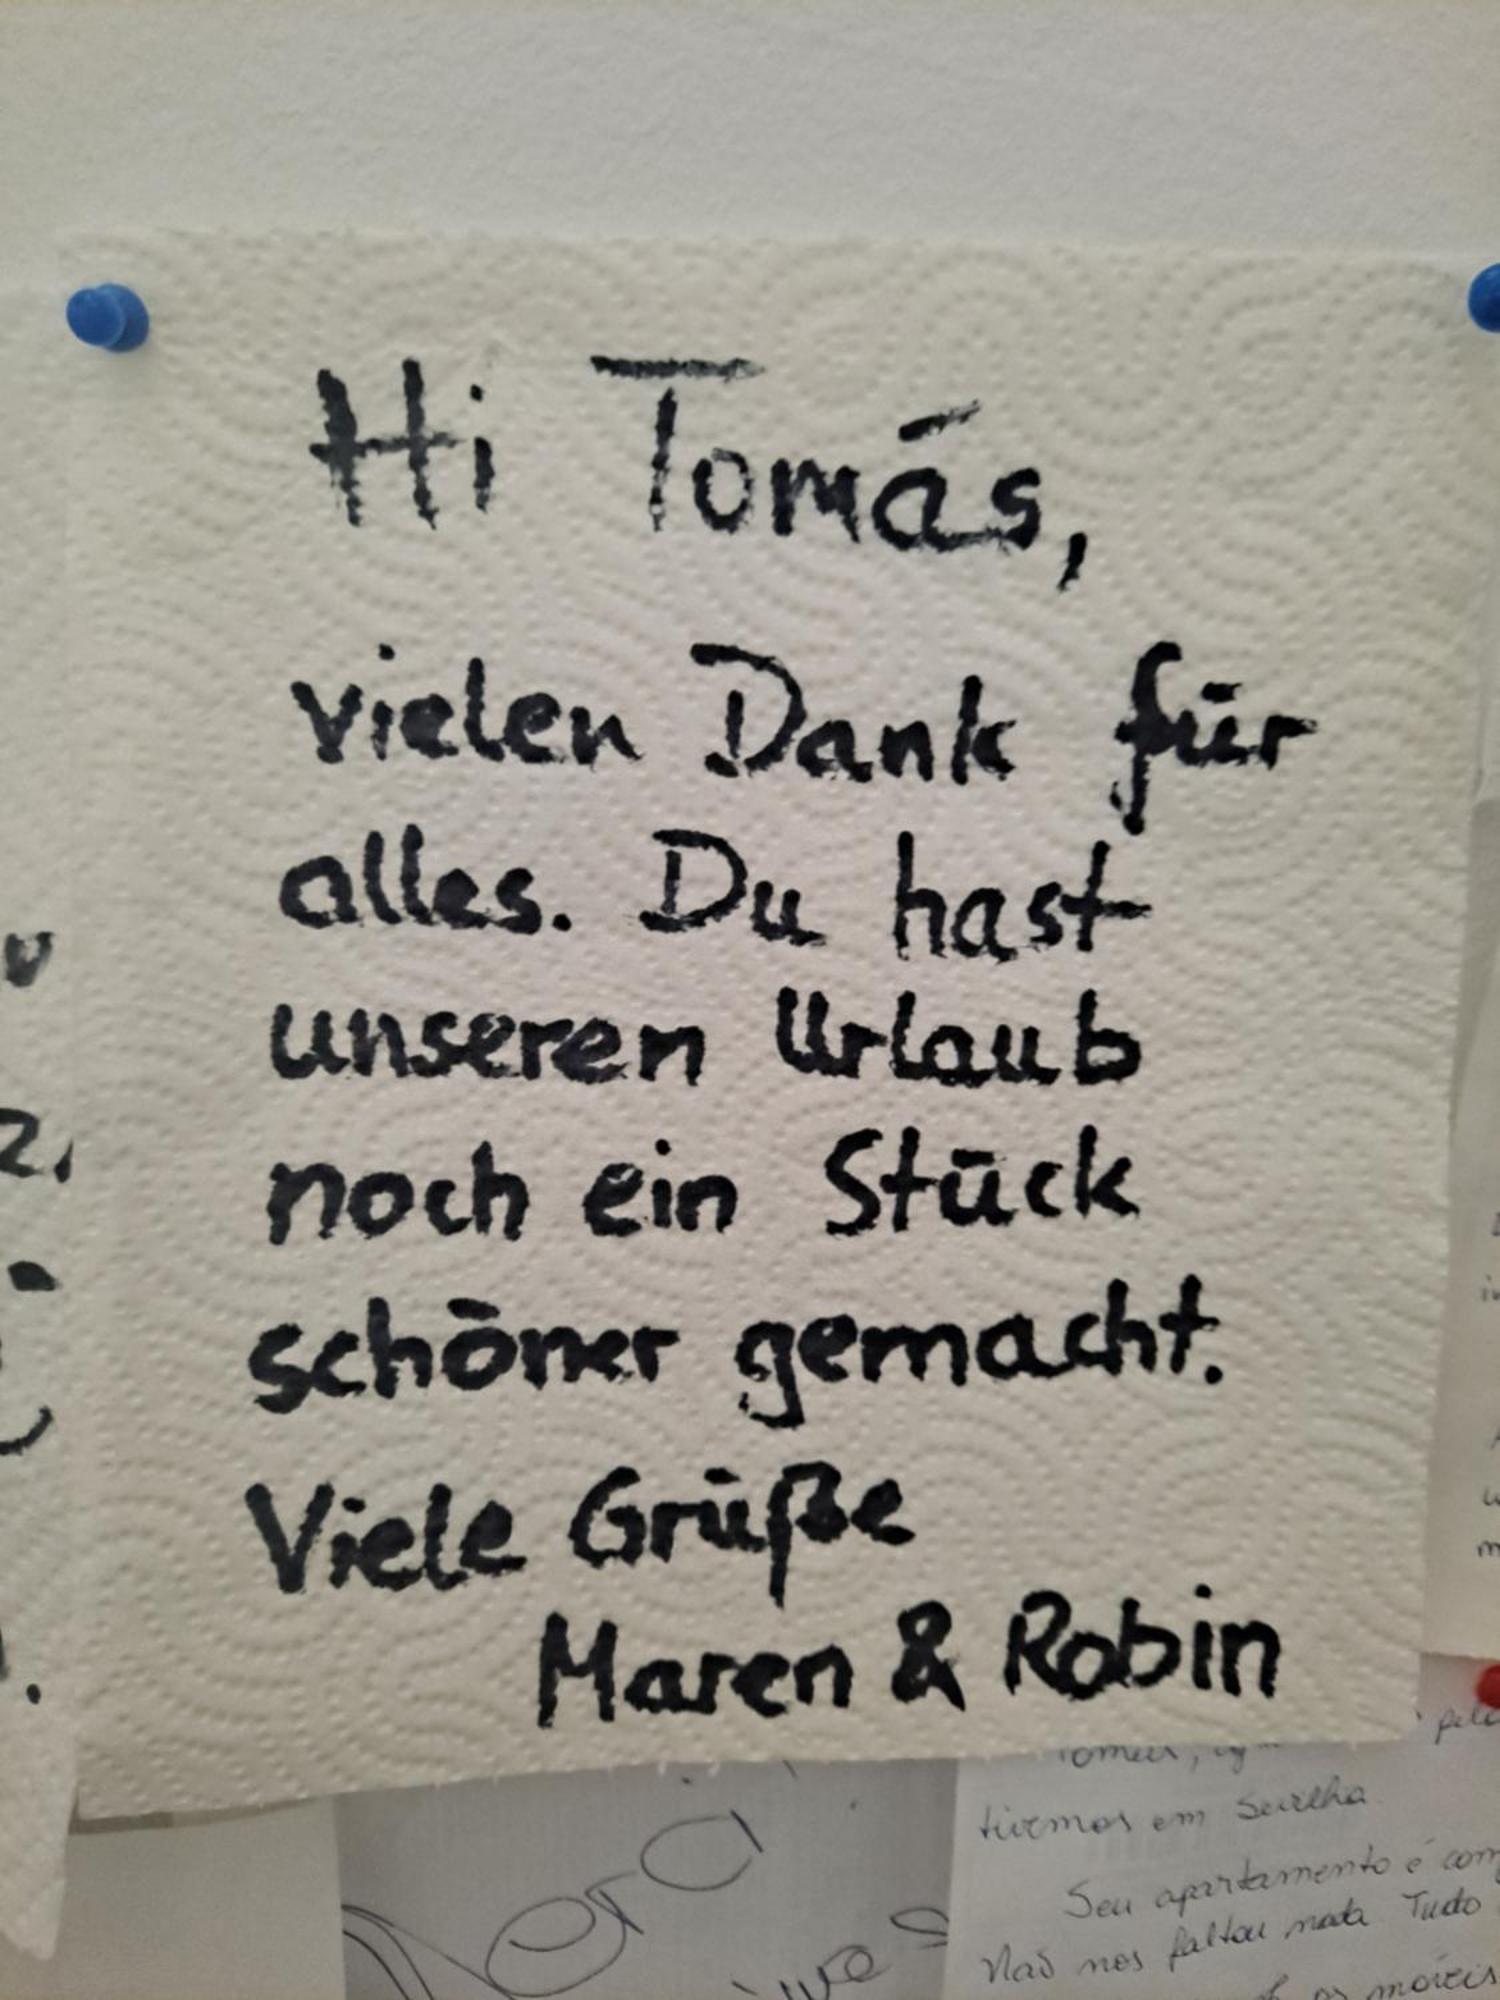 Hi Tomás,
vielen Dank für
alles. Du hast
unseren Urlaub
noch ein Stück
schöner gemacht.
Viele Grüße
Maren & Robin
tivemos em Sevilha
Seu apartamento é
Não nos faltou nada Tudo
os móveis